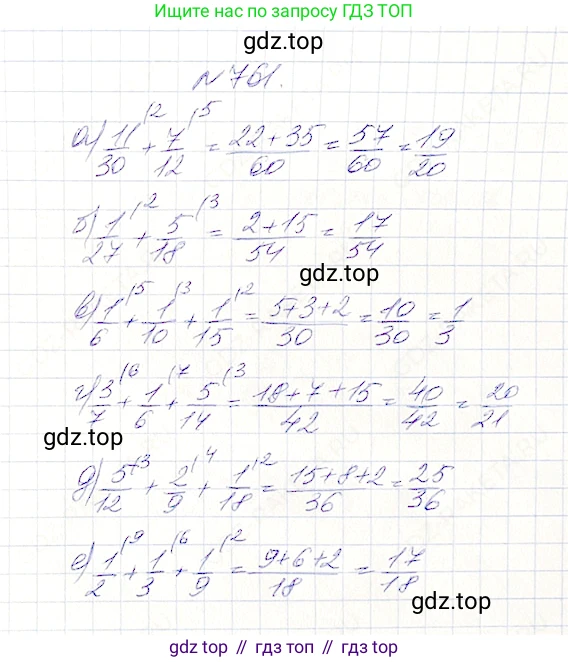 Ищите нас по запросу ГДЗ ТОП
gdz.top
№761.
а) 11/30 (2 + 7/12 (5 = 22+35/60 = 57/60 = 19/20
б) 1/27 (2 + 5/18 (3 = 2+15/54 = 17/54
gdz.top
в) 1/6 (5 + 1/10 (3 + 1/15 (2 = 5+3+2/30 = 10/30 = 1/3
г) 3/7 (6 + 1/6 (7 + 5/14 (3 = 18+7+15/42 = 40/42 = 20/21
gdz.top
д) 5/12 (3 + 2/9 (4 + 1/18 (2 = 15+8+2/36 = 25/36
е) 1/2 (9 + 1/3 (6 + 1/9 (2 = 9+6+2/18 = 17/18
gdz.top
gdz top // гдз топ // gdz.top